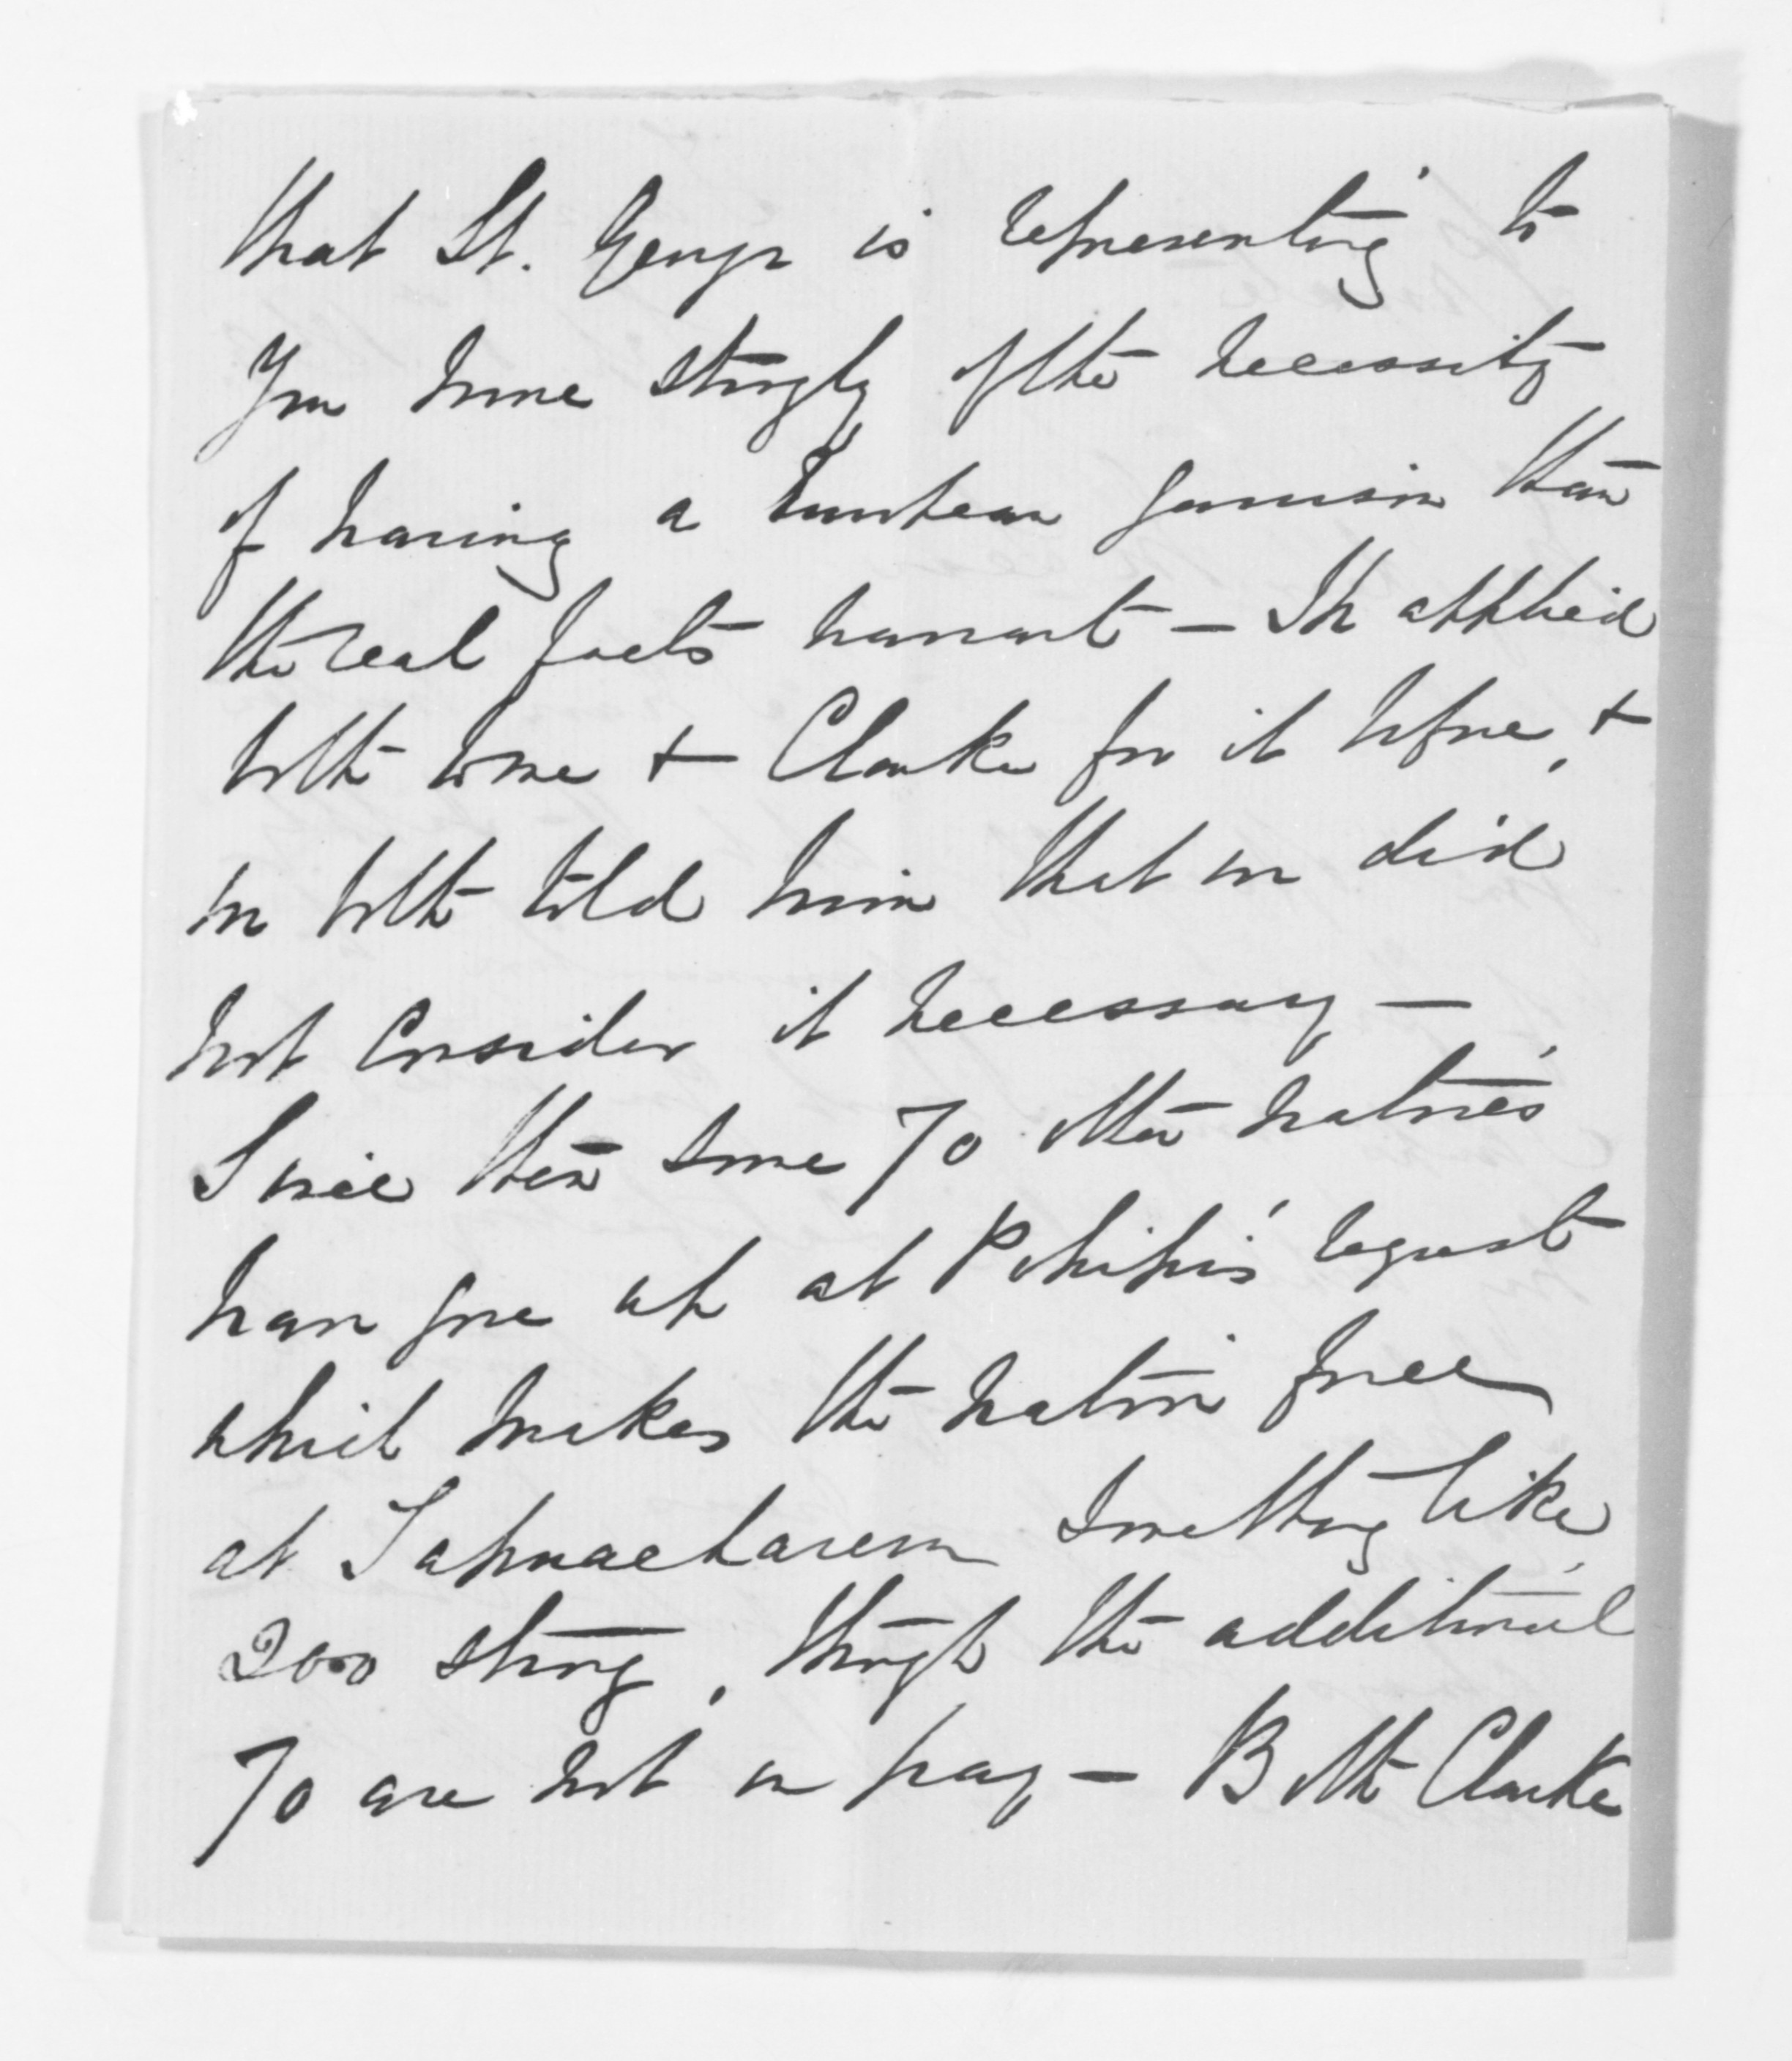 that St. George is representing to
you more strongly of the necessity
of having a European garrison than
the real facts warrant – He applied
both to me & Clarke for it before, &
we both told him that we did
not consider it necessary –
Since then some 70 other natives
have gone up at Pohipi's request
which makes the native force
at Tapuaeharuru something like
200 strong, though the additional
70 are not on pay – Both Clarke